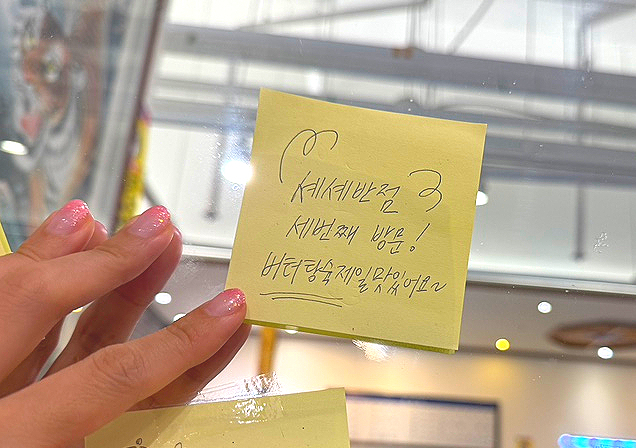 세세반점
세번째 방문!
버터탕숙제일맛있어요~